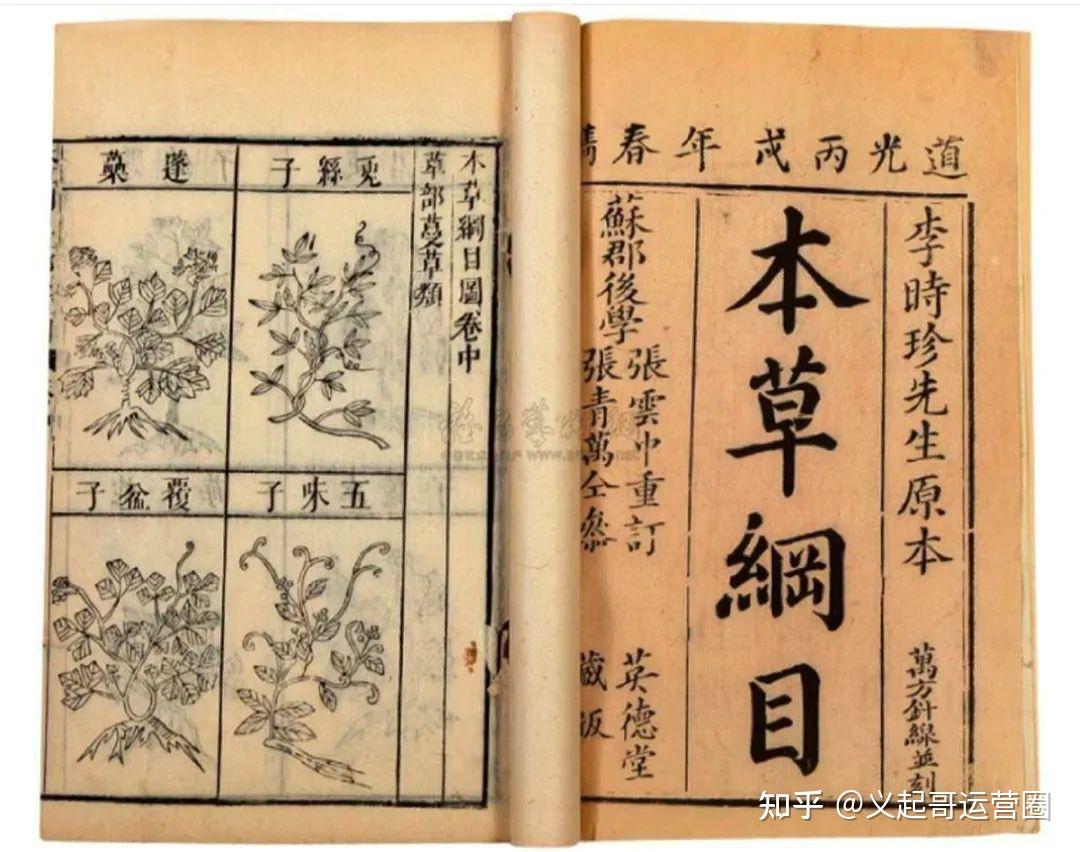 道光丙戌年春鐫
李時珍先生原本
萬方針線並刻
本草綱目
蘇郡後學
張雲中重訂
張青萬仝參
英德堂
藏版
本草綱目圖卷中
草部蔓草類
兎絲子
蓬蘽
五味子
覆盆子
知乎 @义起哥运营圈